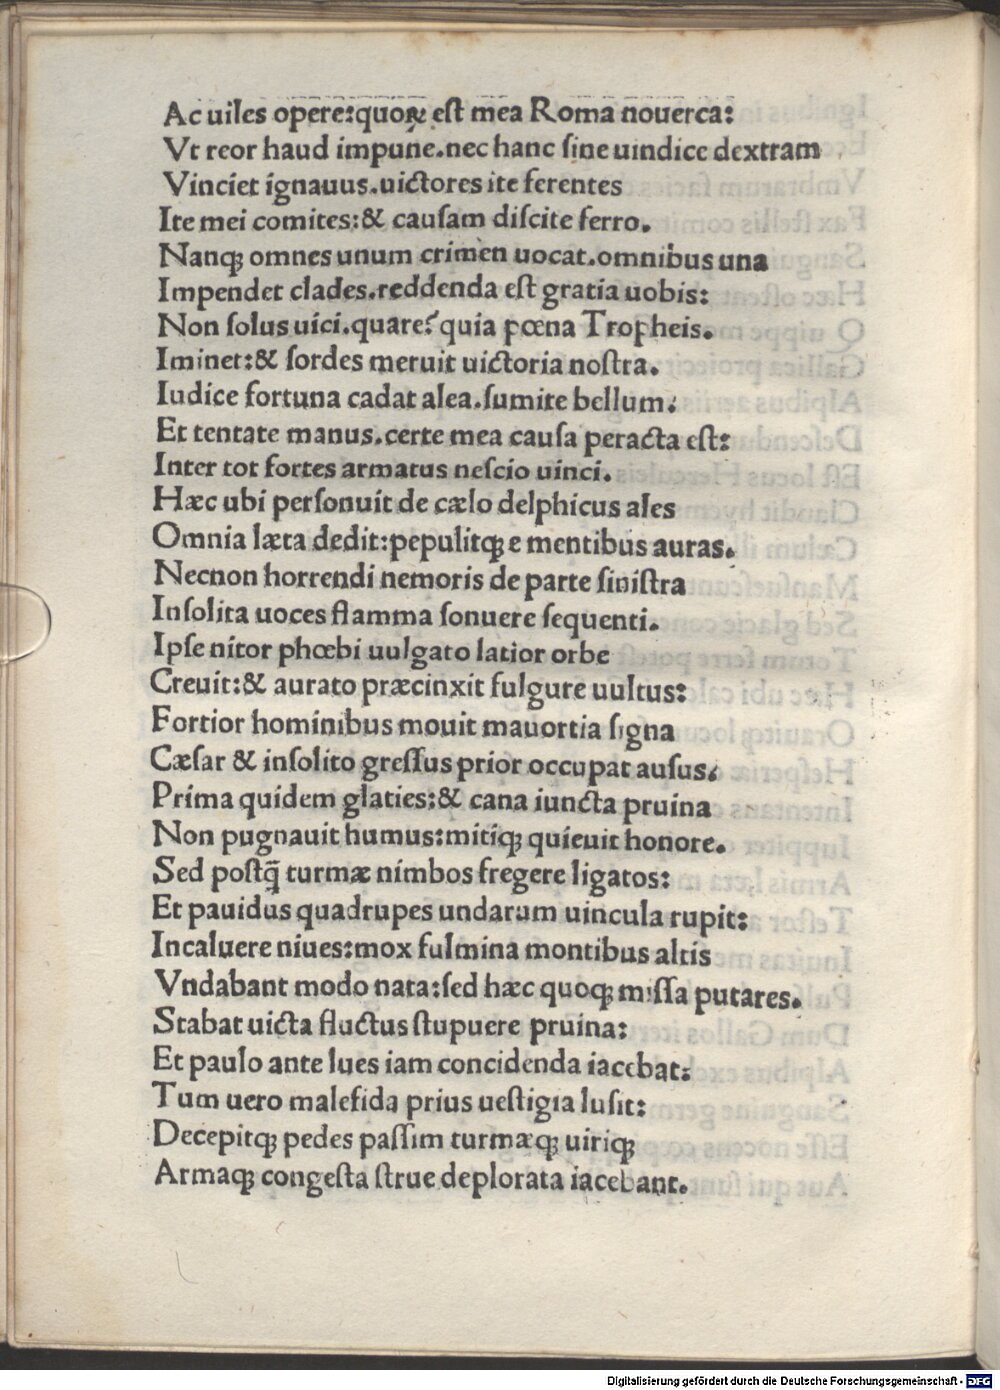 Ac uiles opere:quoꝝ est mea Roma nouerca:
Vt reor haud impune.nec hanc sine uindice dextram
Vinciet ignauus.uictores ite ferentes
Ite mei comites:& causam discite ferro.
Nanqꝫ omnes unum crimen uocat.omnibus una
Impendet clades.reddenda est gratia uobis:
Non solus uici.quare? quia pœna Tropheis.
Iminet:& sordes meruit uictoria nostra.
Iudice fortuna cadat alea.sumite bellum:
Et tentate manus.certe mea causa peracta est:
Inter tot fortes armatus nescio uinci.
Hæc ubi personuit de cælo delphicus ales
Omnia læta dedit:pepulitqꝫ e mentibus auras.
Necnon horrendi nemoris de parte sinistra
Insolita uoces flamma sonuere sequenti.
Ipse nitor phœbi uulgato latior orbe
Creuit:& aurato præcinxit fulgure uultus:
Fortior hominibus mouit mauortia signa
Cæsar & insolito gressus prior occupat ausus:
Prima quidem glaties:& cana iuncta pruina
Non pugnauit humus:mitiqꝫ quieuit honore.
Sed postq̄ turmæ nimbos fregere ligatos:
Et pauidus quadrupes undarum uincula rupit:
Incaluere niues:mox fulmina montibus altis
Vndabant modo nata:sed hæc quoqꝫ missa putares.
Stabat uicta fluctus stupuere pruina:
Et paulo ante lues iam concidenda iacebat:
Tum uero malefida prius uestigia lusit:
Decepitqꝫ pedes passim turmæqꝫ uiriqꝫ
Armaqꝫ congesta strue deplorata iacebant.
Digitalisierung gefördert durch die Deutsche Forschungsgemeinschaft - DFG